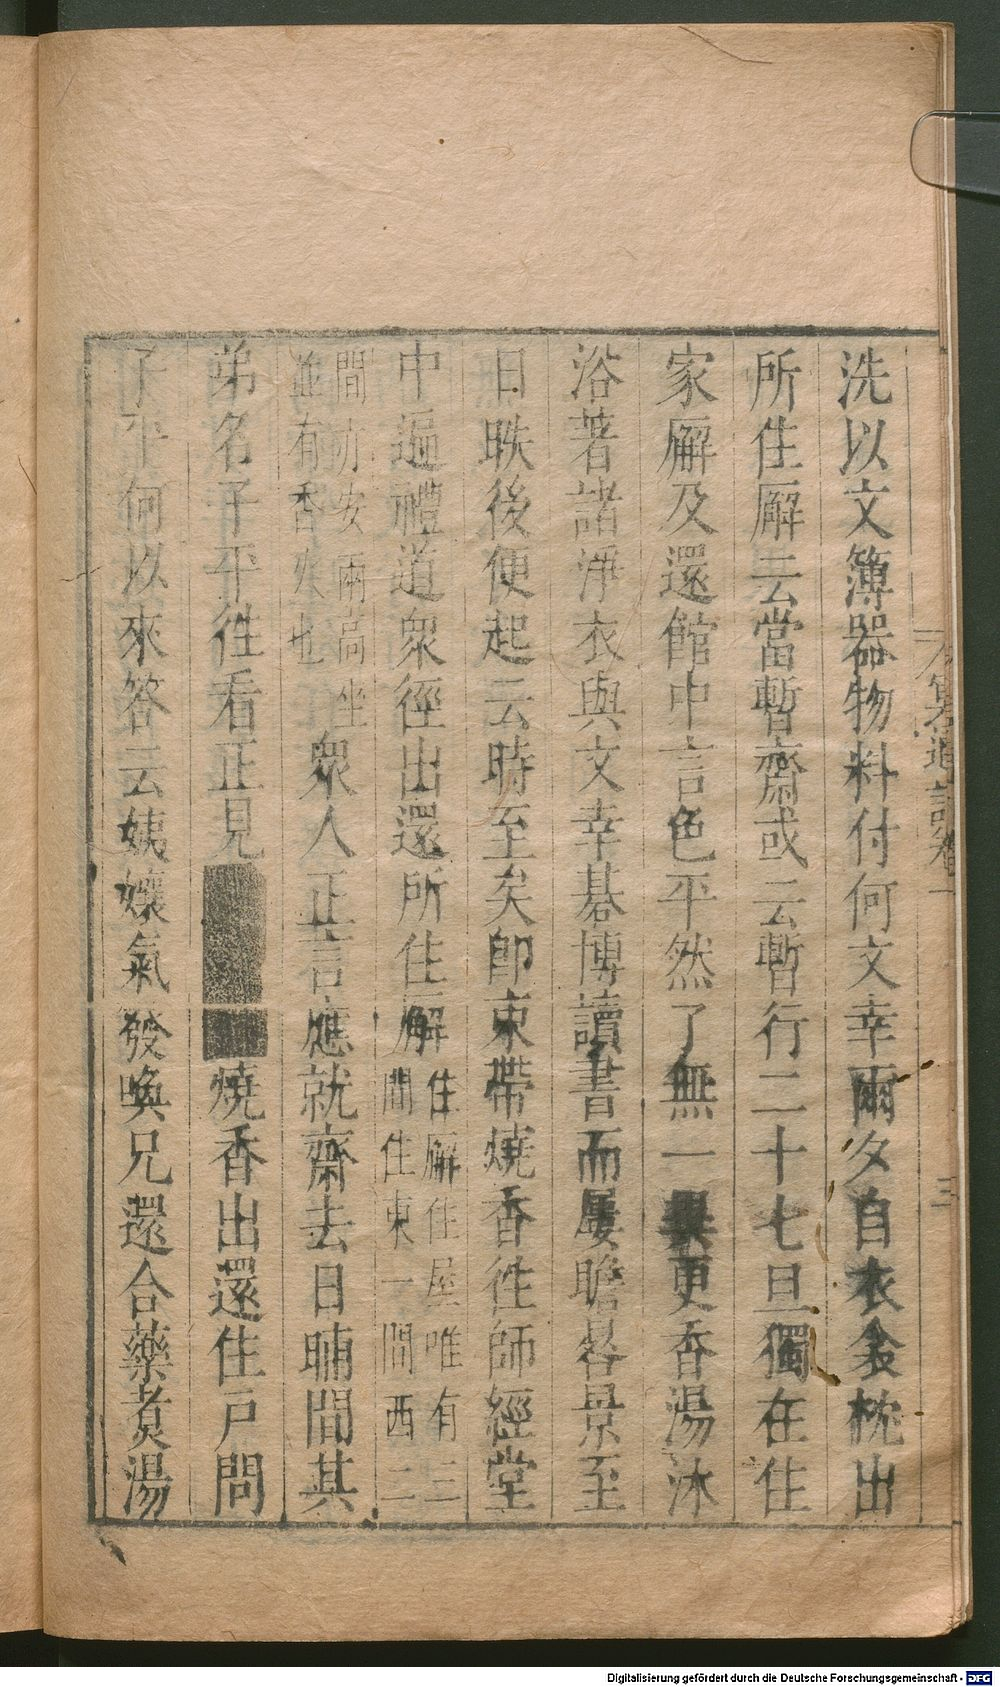 洗以文簿器物料付何文幸爾夕自衣衾枕出
所住廨云當暫齋或云暫行二十七旦獨在住
家廨及還館中言色平然了無一異更香湯沐
浴著諸淨衣與文幸碁博讀書而屢瞻晷景至
日昳後便起云時至矣卽束帶燒香徃師經堂
中遍禮道眾徑出還所住廨
住廨住屋唯有三
間住東一間西二
間亦安兩高坐
並有香火也
眾人正言應就齋去日晡間其
弟名子平徃看正見
燒香出還住戶問
子平何以來答云姨孃氣發喚兄還合藥煑湯
三
Digitalisierung gefördert durch die Deutsche Forschungsgemeinschaft - DFG